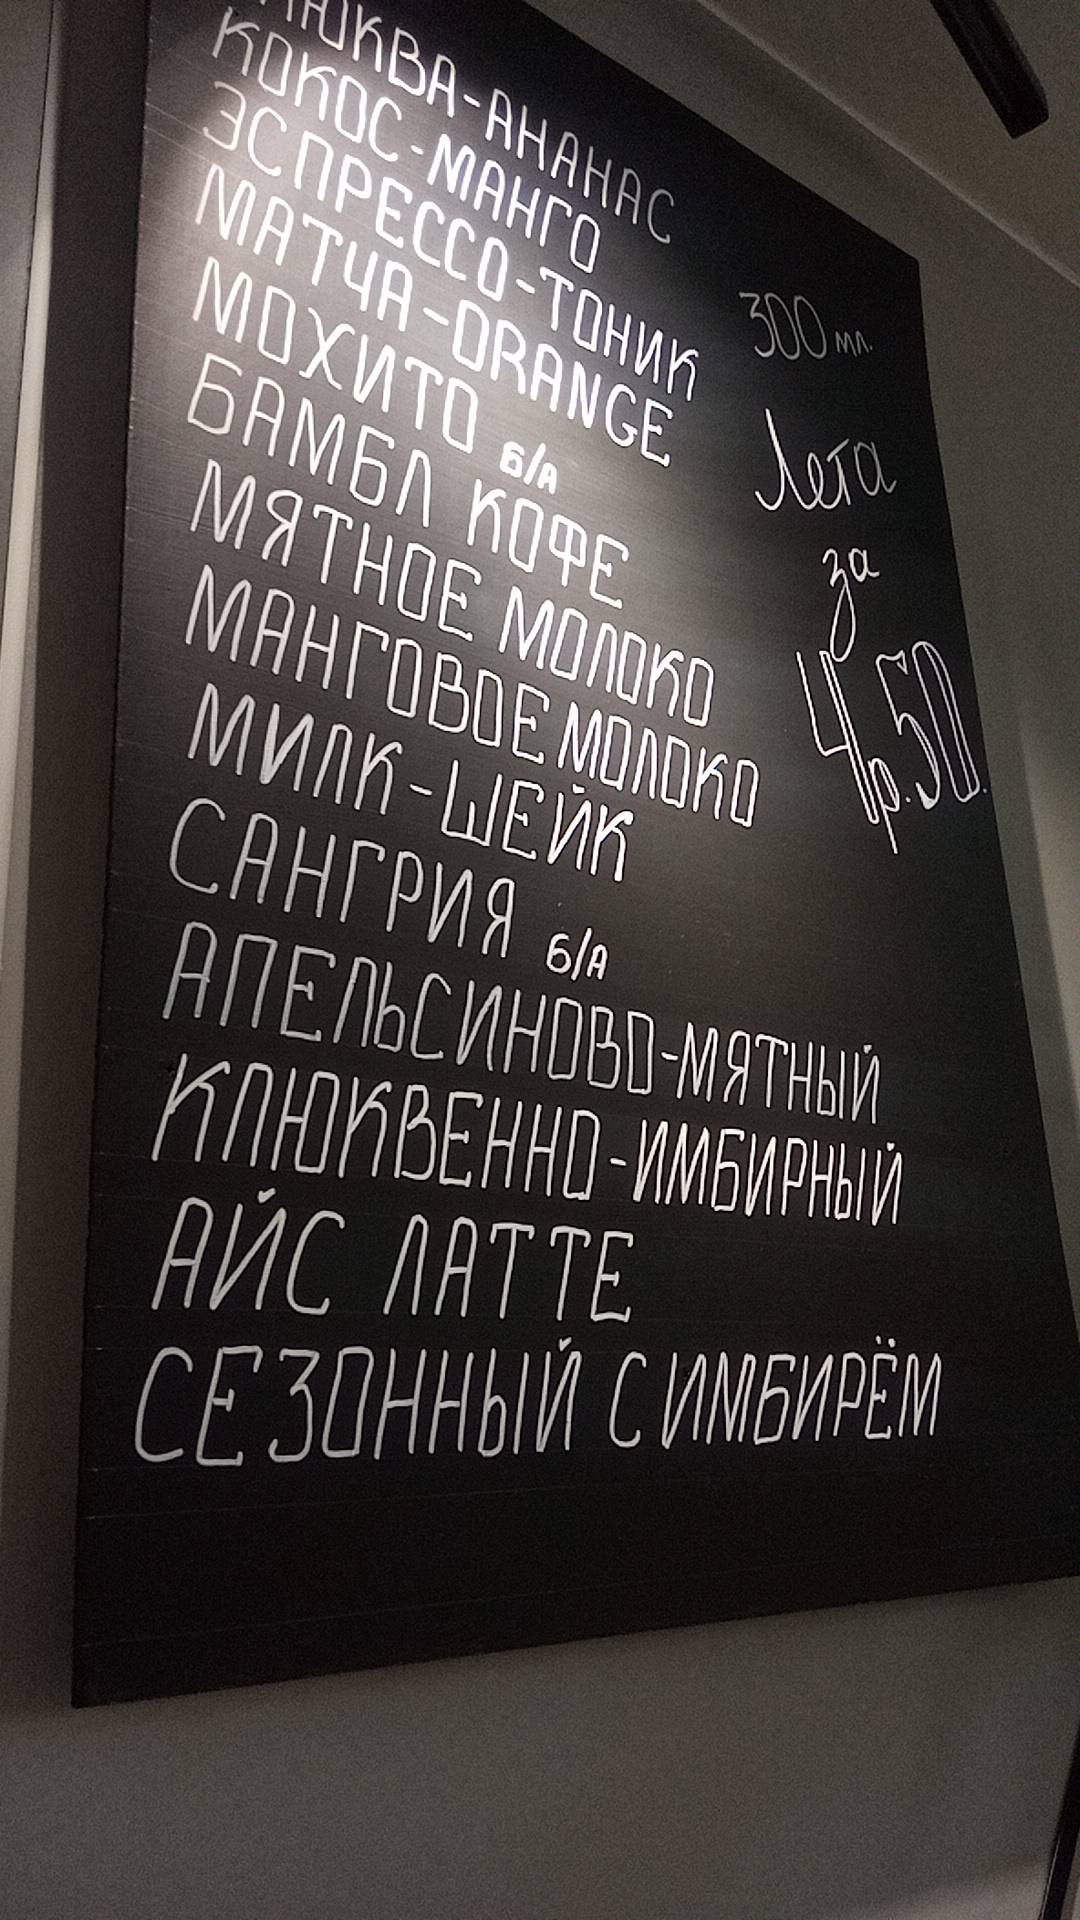 КЛЮКВА-АНАНАС
КОКОС-МАНГО
ЭСПРЕССО-ТОНИК
МАТЧА-ORANGE
МОХИТО б/А
БАМБЛ КОФЕ
МЯТНОЕ МОЛОКО
МАНГОВОЕ МОЛОКО
МИЛК-ШЕЙК
САНГРИЯ б/А
АПЕЛЬСИНОВО-МЯТНЫЙ
КЛЮКВЕННО-ИМБИРНЫЙ
АЙС ЛАТТЕ
СЕЗОННЫЙ С ИМБИРЁМ
300 мл.
Лета
за
4р.50.